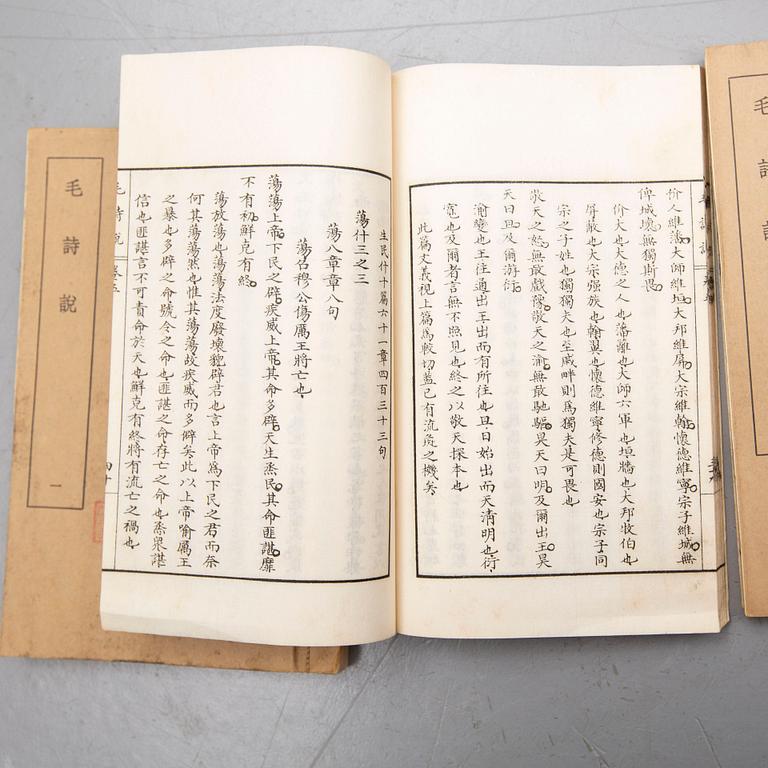 价人維藩大師維垣大邦維屏大宗維翰懷德維寧宗子維城無
俾城壞無獨斯畏
价大也大德之人也藩離也大師六軍也垣牆也大邦牧伯也
屏敝也大宗強族也翰翼也懷德維寧修德則國安也宗子同
宗之子姓也獨獨夫也至戚畔則為獨夫是可畏也
敬天之怒無敢戲豫敬天之渝無敢馳驅昊天曰明及爾出王昊
天曰旦及爾游衍
渝變也王往通出王出而有所往也旦日始出而天清明也衍
寬也及爾者言無不照見也終之以敬天探本也
此篇文義視上篇為較切蓋已有流彘之機矣
生民什十篇六十一章四百三十三句
蕩什三之三
蕩八章章八句
蕩召穆公傷厲王將亡也
蕩蕩上帝下民之辟疾威上帝其命多辟天生烝民其命匪諶靡
不有初鮮克有終
蕩放蕩也蕩蕩法度廢壞貌辟君也言上帝為下民之君而奈
何其蕩蕩然也惟其蕩蕩故疾威而多僻矣此以上帝喻厲王
之暴也多辟之命號令之命也匪諶之命存亡之命也烝眾諶
信也匪諶言不可責命於天也鮮克有終將有流亡之禍也
毛詩說 卷五 四十
毛詩說 一
毛詩說